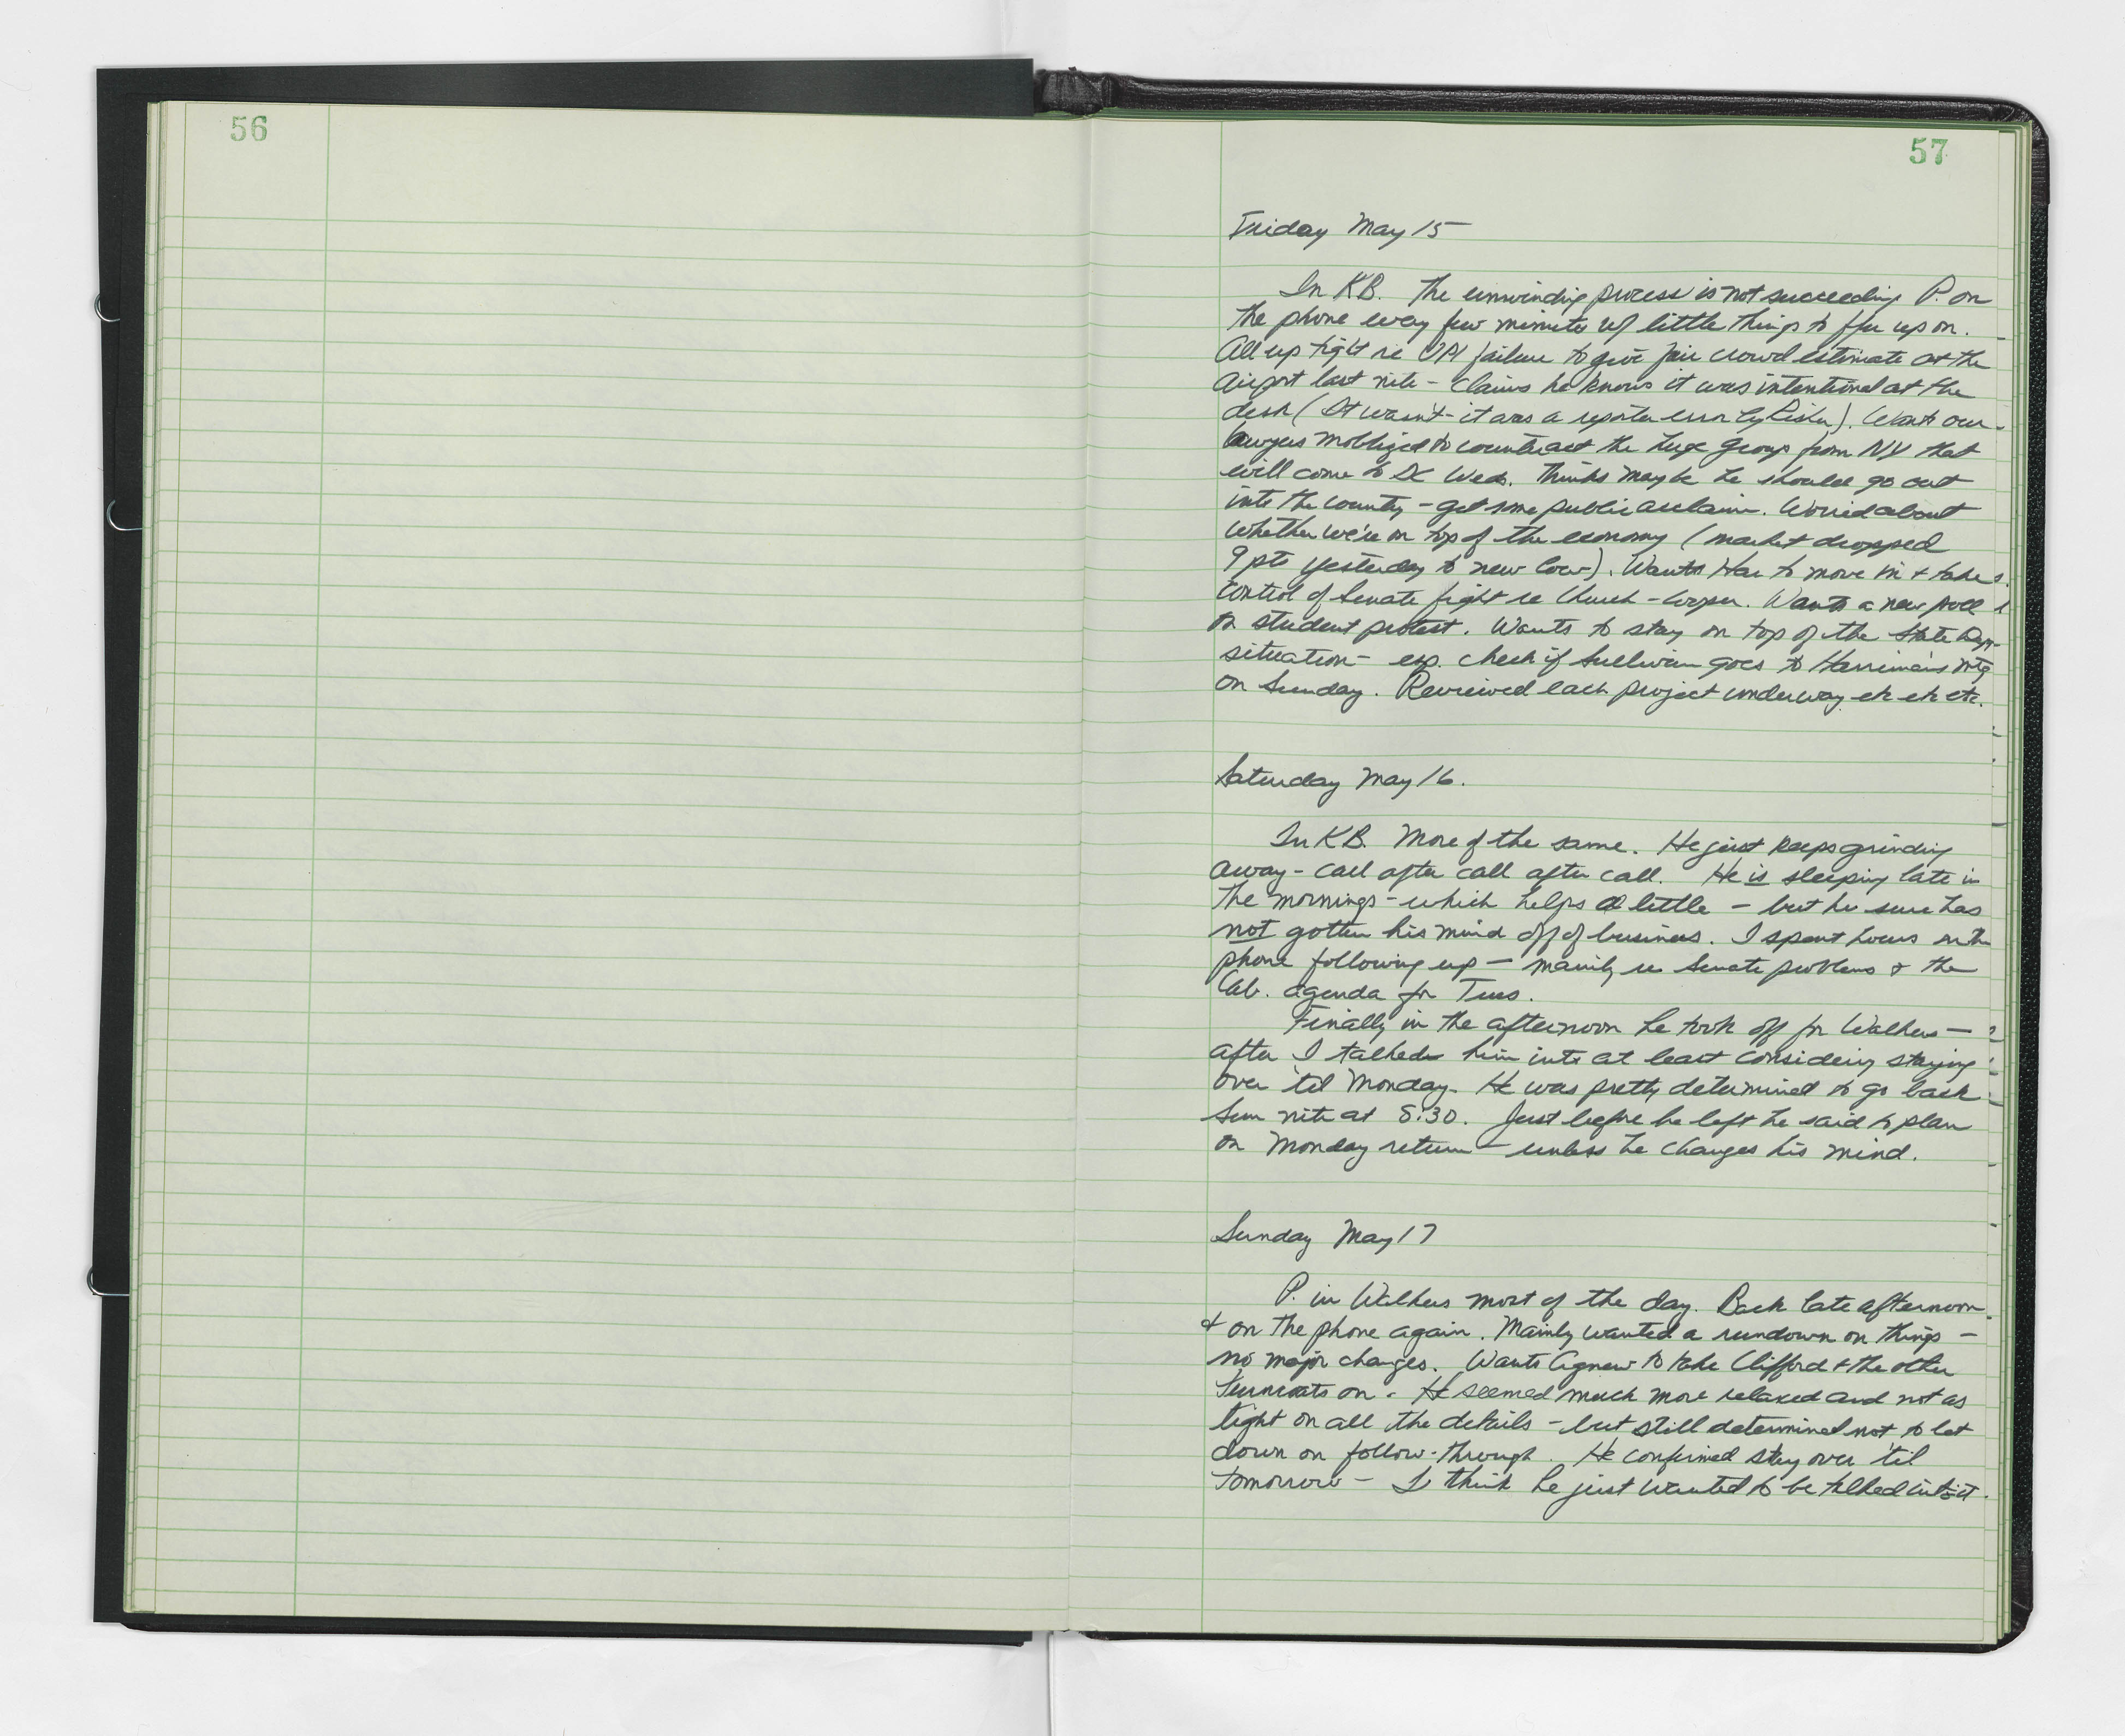 56
57
Friday May 15
In KB. The unwinding process is not succeeding P. on
the phone every few minutes w/ little things to ffu up on.
All up tight re UPI failure to give fair crowd estimate at the
airport last nite - claims he knows it was intentional at the
desk (It wasn't - it was a reporter error by Risher). Wants our
lawyers mobilized to counteract the huge group from NY that
will come to DC Weds. Thinks maybe he should go out
into the country - get some public acclaim. Worried about
whether we're on top of the economy (market dropped
9 pts yesterday to new low). Wants Har to move in + take
control of Senate fight re Church-Cooper. Wants a new poll
on student protest. Wants to stay on top of the State Dept.
situation - esp. check if Sullivan goes to Harriman's mtg
on Sunday. Reviewed each project underway etc etc etc.
Saturday May 16.
In KB. More of the same. He just keeps grinding
away - call after call after call. He is sleeping late in
the mornings - which helps a little - but he sure has
not gotten his mind off of business. I spent hours on the
phone following up - mainly re Senate problems & the
Cab. agenda for Tues.
Finally in the afternoon he took off for Walkers -
after I talked him into at least considering staying
over 'til Monday. He was pretty determined to go back
Sun nite at 8:30. Just before he left he said to plan
on Monday return - unless he changes his mind.
Sunday May 17
P. in Walkers most of the day. Back late afternoon
& on the phone again. Mainly wanted a rundown on things -
no major changes. Wants Agnew to take Clifford & the other
turncoats on. He seemed much more relaxed and not as
tight on all the details - but still determined not to let
down on follow-through. He confirmed stay over 'til
tomorrow - I think he just wanted to be talked into it.